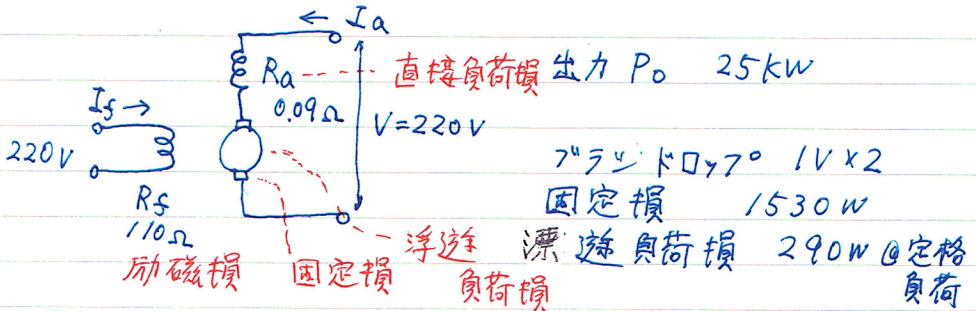 ← Ia
Ra
直接負荷損
出力 Po 25kW
0.09Ω
If →
V=220V
220V
ブラシドロップ 1V×2
Rf
110Ω
固定損 1530W
励磁損
固定損
浮遊
負荷損
漂遊負荷損 290W @定格
負荷